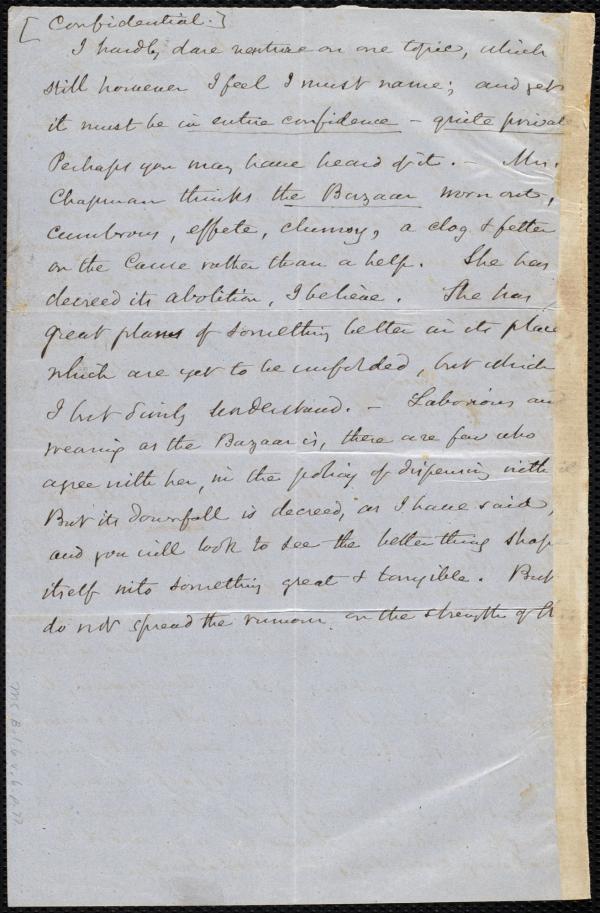 [Confidential.]
I hardly dare venture on one topic, which
still however I feel I must name; and yet
it must be in entire confidence – quite privat
Perhaps you may have heard of it. – Mrs.
Chapman thinks the Bazaar worn out,
cumbrous, effete, clumsy, a clog & fetter
on the Cause rather than a help. She has
decreed its abolition, I believe. She has
great plans of something better in its place
which are yet to be unfolded, but which
I but dimly understand. – Laborious and
wearing as the Bazaar is, there are few who
agree with her, in the policy of dispensing with it
But its downfall is decreed, as I have said,
and you will look to see the better thing shape
itself into something great & tangible. But
do not spread the rumour on the strength of
Ms. B.1.6 v.6 p.77